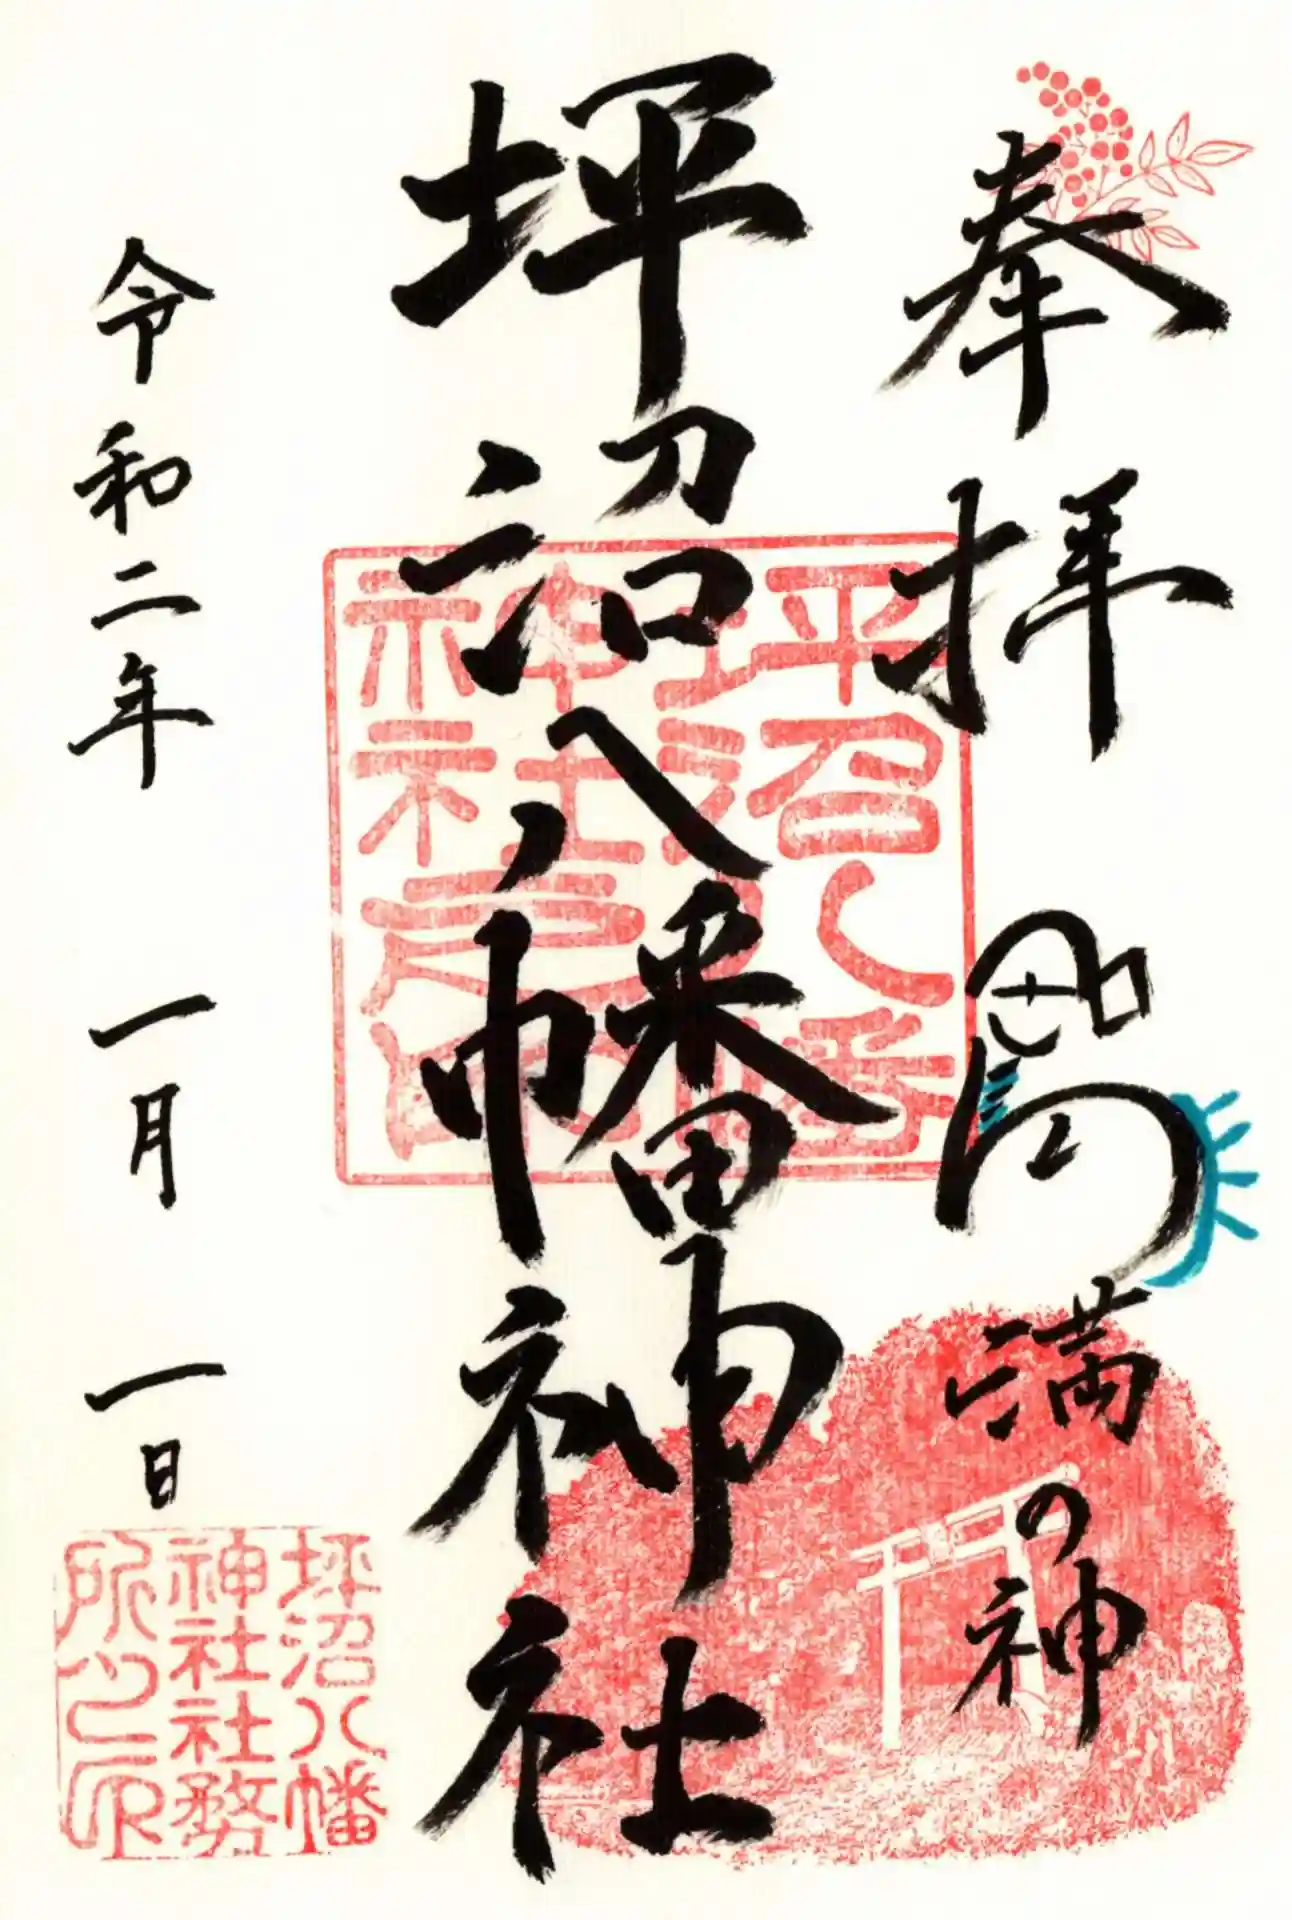 奉拝
満の神
坪沼八幡神社
令和二年
一月
一日
坪沼八幡
神社社務
所之印
坪沼八幡
神社之印